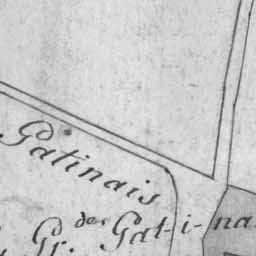 Gatinais
Gr. der Gat-i-na